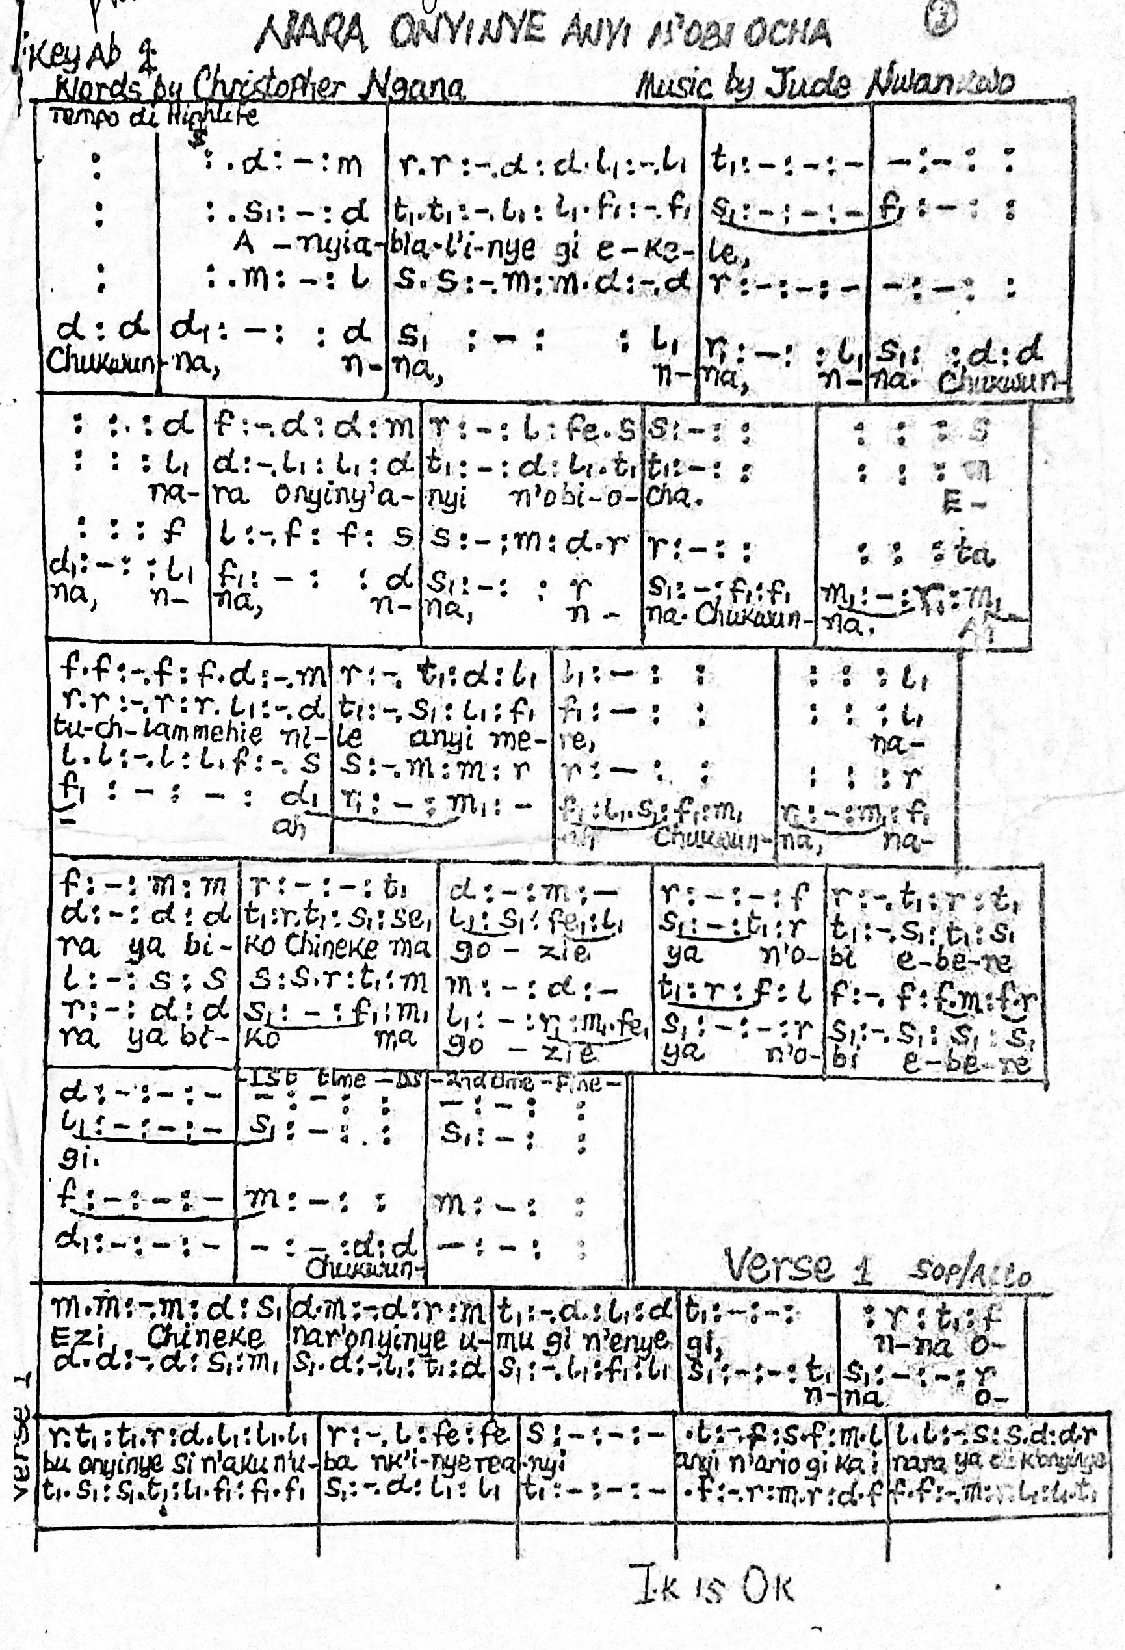 NARA ONYINYE ANYI N'OBI OCHA
②
Key Ab 4
Words by Christopher Ngana
Music by Jude Nwankwo
Tempo di Highlife
: | :.d:-:m | r.r:-.d:d.l₁:-.l₁ | t₁:-:-:- | -:-: :
: | :.s₁:-:d | t₁.t₁:-.l₁:l₁.f₁:-.f₁ | s₁:-:-:- | f₁:-: :
A -nyia-bla-l'i-nye gi e-ke-le,
: | :.m:-:l | s.s:-.m:m.d:-.d | r:-:-:- | -:-: :
d:d | d₁:-: :d | s₁:-: :l₁ | r₁:-: :l₁ | s₁: :d:d
Chukwun-na, n-na, n-na, n-na. Chukwun-
: :.:d | f:-.d:d:m | r:-:l:fe.s | s:-: : | : : :s
: : :l₁ | d:-.l₁:l₁:d | t₁:-:d:l₁.t₁ | t₁:-: : | : : :m
na-ra onyiny'a-nyi n'obi-o-cha. E-
: : :f | l:-.f:f:s | s:-:m:d.r | r:-: : | : : :ta
d₁:-: :l₁ | f₁:-: :d | s₁:-: :r | s₁:-:f₁:f₁ | m₁:-:r₁:m₁
na, n-na, n-na, n-na. Chukwun-na. Ah
f.f:-.f:f.d:-.m | r:-.t₁:d:l₁ | l₁:-: : | : : :l₁
r.r:-.r:r.l₁:-.d | t₁:-.s₁:l₁:f₁ | f₁:-: : | : : :l₁
tu-ch-lammehie ni-le anyi me-re, na-
l.l:-.l:l.f:-.s | s:-.m:m:r | r:-: : | : : :r
f₁:-:-:d₁ | r₁:-:m₁:- | f₁:l₁.s₁:f₁:m₁ | r₁:-:m₁:f₁
- ah ah Chukwun-na, na-
f:-:m:m | r:-:-:t₁ | d:-:m:- | r:-:-:f | r:-.t₁:r:t₁
d:-:d:d | t₁:r.t₁:s₁:se₁ | l₁:s₁:fe₁:l₁ | s₁:-:t₁:r | t₁:-.s₁:t₁:s₁
ra ya bi-ko Chineke ma go-zie ya n'o-bi e-be-re
l:-:s:s | s:s.r:t₁:m | m:-:d:- | t₁:r:f:l | f:-.f:f.m:f.r
r:-:d:d | s₁:-:f₁:m₁ | l₁:-:r₁:m₁.fe₁ | s₁:-:-:r | s₁:-.s₁:s₁:s₁
ra ya bi-ko ma go-zie ya n'o-bi e-be-re
-1st time-DS-2nd time-Fine-
d:-:-:- | -:-: : | -:-: :
l₁:-:-:- | s₁:-: : | s₁:-: :
gi.
f:-:-:- | m:-: : | m:-: :
d₁:-:-:- | -:-:d:d | -:-: :
Chukwun-
Verse 1 Sop/Alto
m.m:-.m:d:s₁ | d.m:-.d:r:m | t₁:-.d:l₁:d | t₁:-:-: | :r:t₁:f
Ezi Chineke nar'onyinye u-mu gi n'enye gi, n-na o-
d.d:-.d:s₁:m₁ | s₁.d:-.l₁:t₁:d | s₁:-.l₁:f₁:l₁ | s₁:-:-:t₁ | s₁:-:-:r
n-na o-
verse 1
r:t₁:t₁.r:d.l₁:l₁.l₁ | r:-.l:fe:fe | s:-:-:- | .l:-.f:s.f:m.l | l.l:-.s:s.d:d.r
bu onyinye si n'aku n'u-ba nk'i-nyerea-nyi anyi n'ario gi ka i nara ya
t₁.s₁:s₁.t₁:l₁.f₁:f₁.f₁ | s₁:-.d:l₁:l₁ | t₁:-:-:- | .f:-.r:m.r:d.f | f.f:-.m:
I.K IS OK